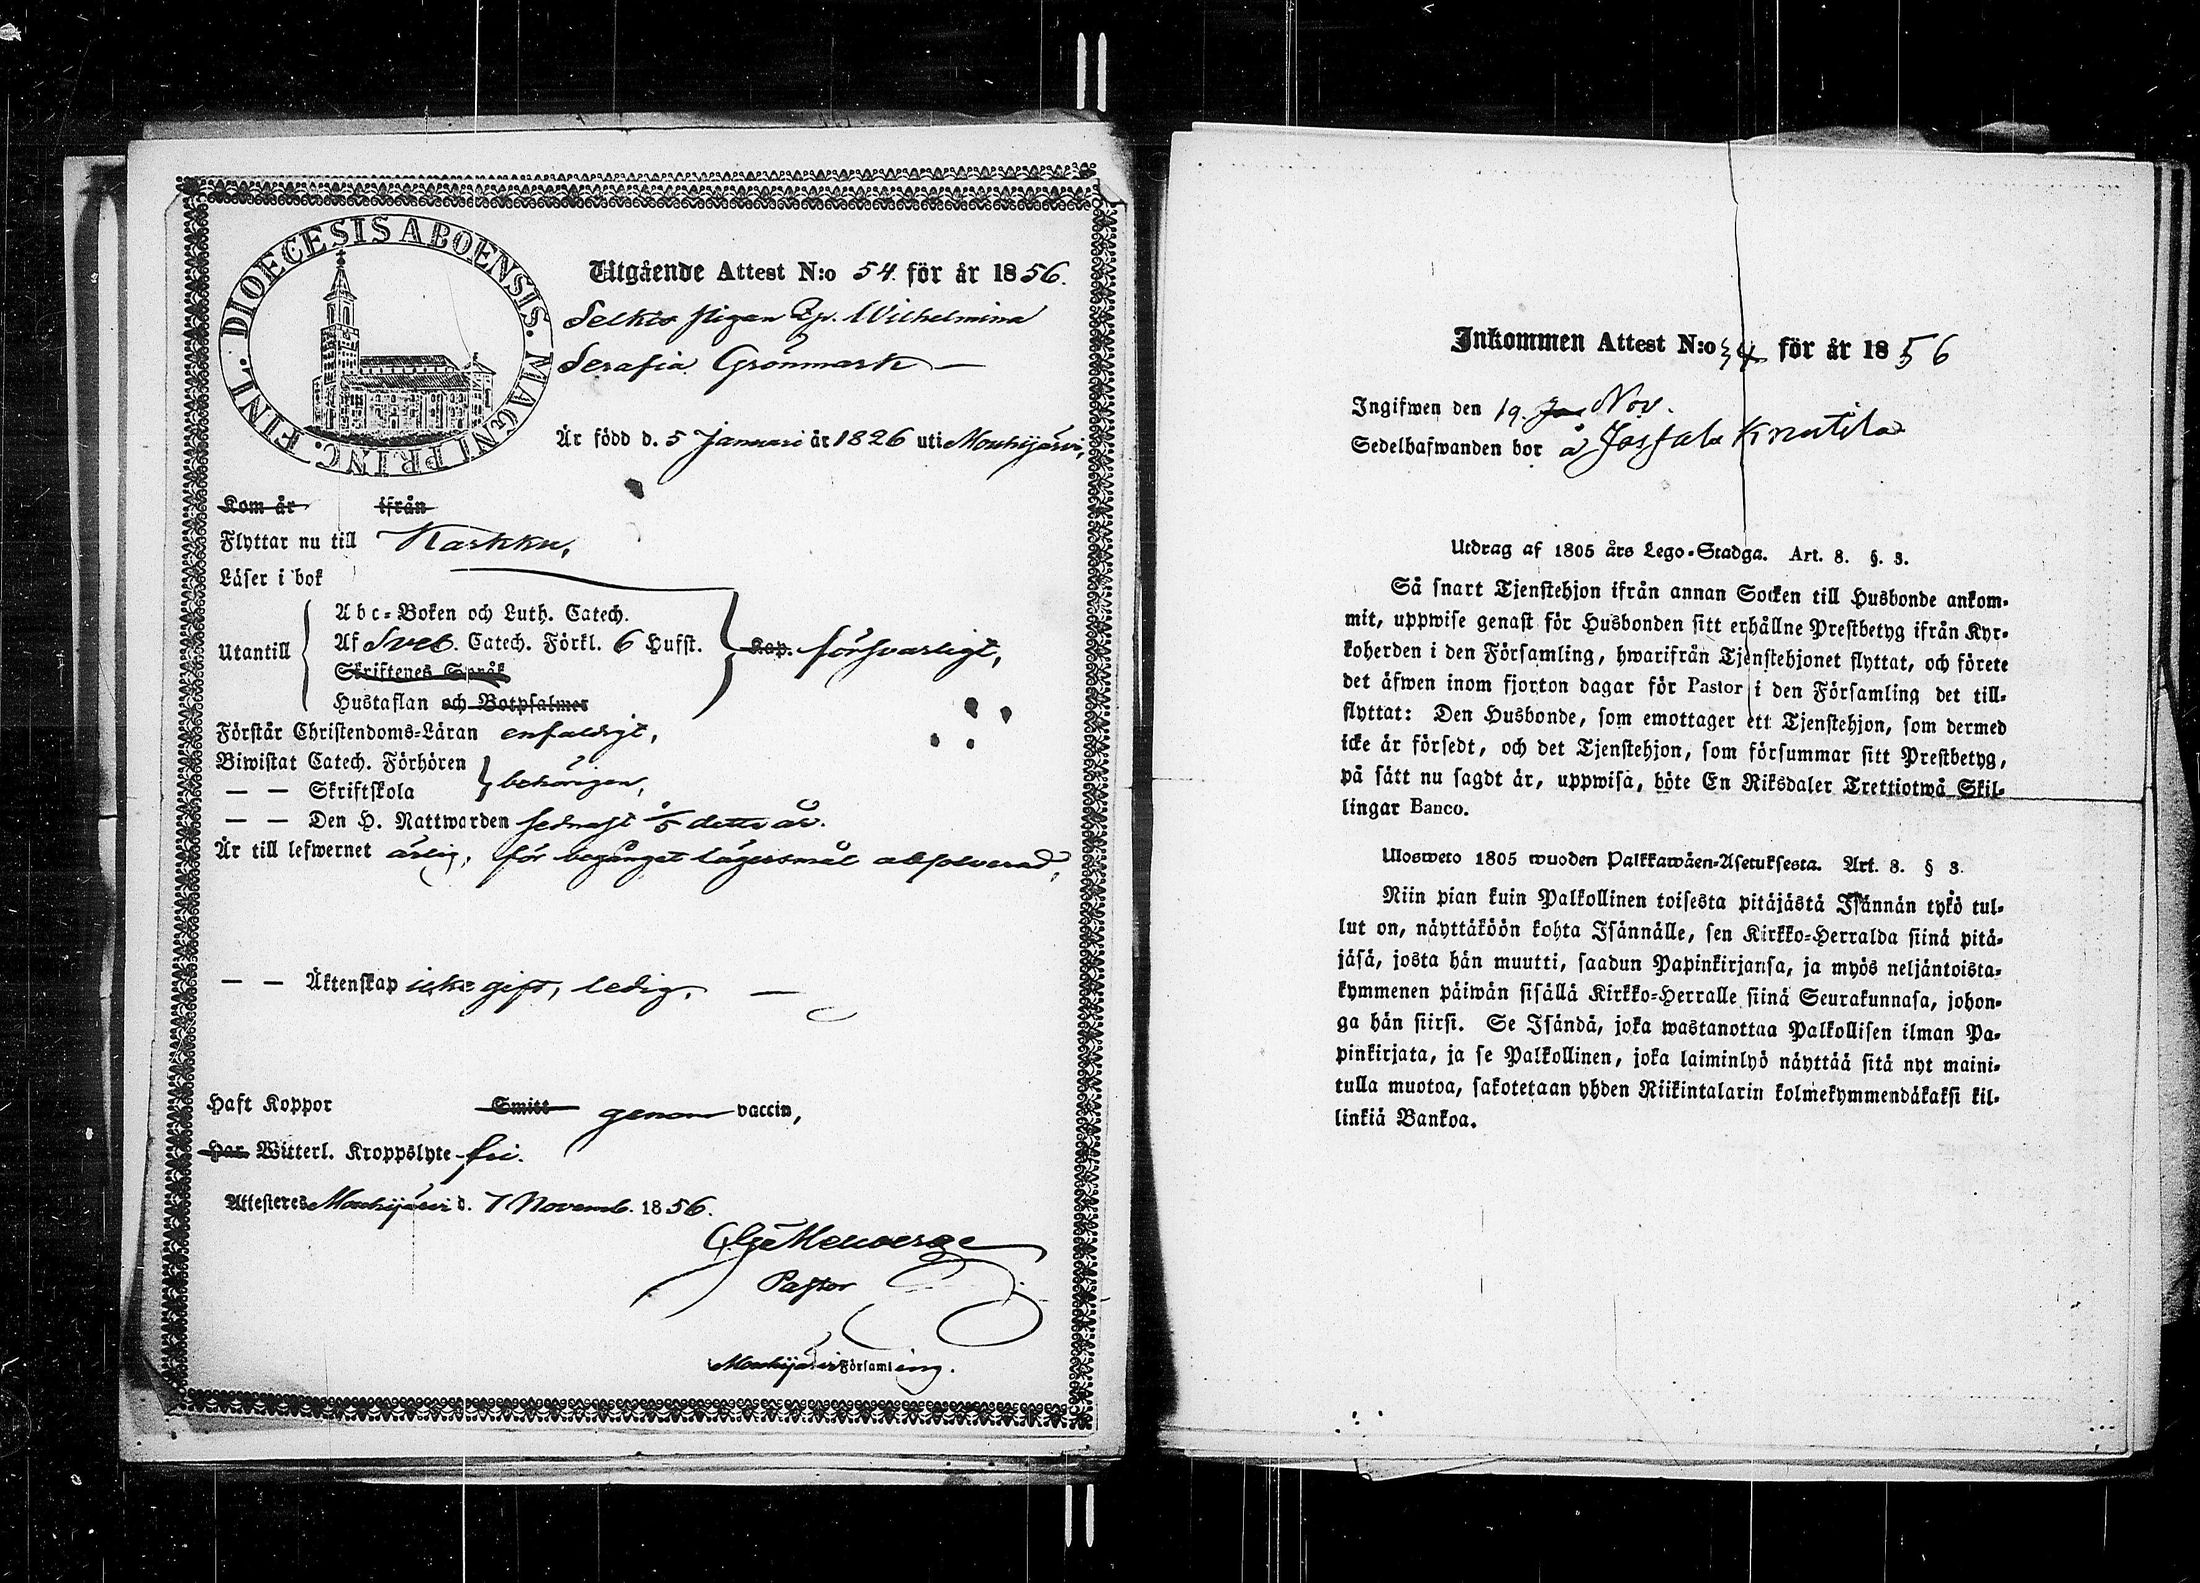 DIOECESIS ABOENSIS. MAGNI PRINC. FINL.
Utgående Attest N:o 54. för år 1856.
Selkis pigan Wilhelmina
Serafia Grönmark —
Är född d. 5 Januari år 1826 uti Mouhijärvi,
Kom år ifrån
Flyttar nu till Karkku,
Läser i bok
Utantill
Abc-Boken och Luth. Catech.
Af Sveb. Catech. Förkl. 6 Hufst. Kap. försvarligt,
Skriftenes Språk
Hustaflan och Botpsalmer
Förstår Christendoms-Läran enfaldigt,
Biwistat Catech. Förhören
— — Skriftskola behörigen,
— — Den H. Nattwarden sednast detta år.
Är till lefwernet ärlig, för begånget lägersmål absolverad,
— — Äktenskap icke gift, ledig. —
Haft Koppor Smitt genom vaccin,
Har Witterl. Kroppslyte fri.
Attesteres Mouhijärvi d. 7 Novemb. 1856.
Pastor
Mouhijärvi Församling.
Inkommen Attest N:o 34 för år 1856
Ingifwen den 19. Nov.
Sedelhafwanden bor å Knutila
Utdrag af 1805 års Lego-Stadga. Art. 8. §. 3.
Så snart Tjenstehjon ifrån annan Socken till Husbonde ankom-
mit, uppwise genast för Husbonden sitt erhållne Prestbetyg ifrån Kyr-
koherden i den Församling, hwarifrån Tjenstehjonet flyttat, och förete
det äfwen inom fjorton dagar för Pastor i den Församling det till-
flyttat: Den Husbonde, som emottager ett Tjenstehjon, som dermed
icke är försedt, och det Tjenstehjon, som försummar sitt Prestbetyg,
på sätt nu sagdt är, uppwisa, böte En Riksdaler Trettiotwå Skil-
lingar Banco.
Ulosweto 1805 wuoden Palkkawäen-Asetuksesta. Art. 8. § 3.
Niin pian kuin Palkollinen toisesta pitäjästä Isännän tykö tul-
lut on, näyttäköön kohta Isännälle, sen Kirkko-Herralda siinä pitä-
jäsä, josta hän muutti, saadun Papinkirjansa, ja myös neljäntoista-
kymmenen päiwän sisällä Kirkko-Herralle siinä Seurakunnasa, johon-
ga hän siirsi. Se Isändä, joka wastanottaa Palkollisen ilman Pa-
pinkirjata, ja se Palkollinen, joka laiminlyö näyttää sitä nyt maini-
tulla muotoa, sakotetaan yhden Riikintalarin kolmekymmendäkaksi kil-
linkiä Bankoa.